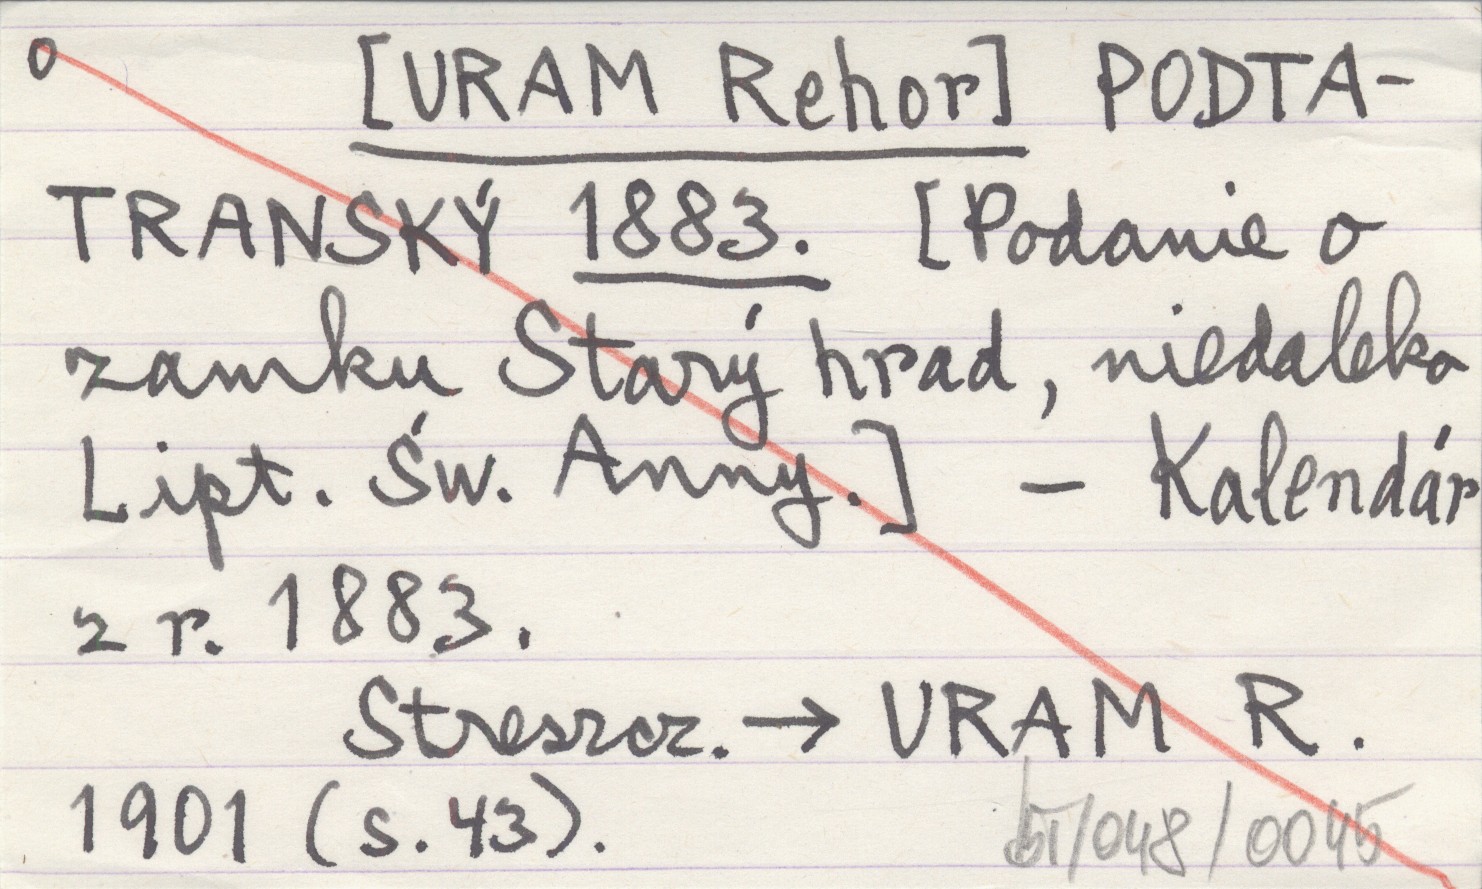 o [URAM Rehor] PODTA-
TRANSKÝ 1883. [Podanie o
zamku Starý hrad, niedaleko
Lipt. Św. Anny.] – Kalendár
z r. 1883.
Streszcz. → URAM R.
1901 (s. 43).
/048/0045